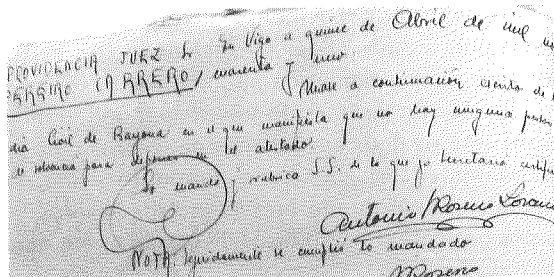 PROVIDENCIA JUEZ Sr En Vigo a quince de Abril de mil
PERRINO CARRERO / cuarenta y uno.
Unase a continuacion escrito de
dia Civil de Bayona en el que manifiesta que no hay ninguna
solvencia para deponer en el atestado
Lo mando y rubrica S.S. de lo que yo Secretario
Antonio Moreno
NOTA Seguidamente se cumplió lo mandado
Moreno